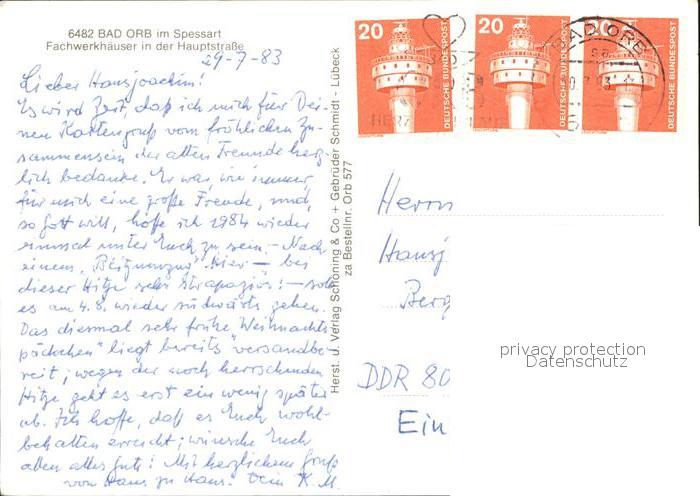 6482 BAD ORB im Spessart
Fachwerkhäuser in der Hauptstraße
29-7-83
Lieber Hansjoachim!
Es wird Zeit, daß ich mich für Dei-
nen Kartengruß vom fröhlichen Zu-
sammensein der alten Freunde herz-
lich bedanke. Es war, wie immer,
für mich eine große Freude, und,
so Gott will, hoffe ich 1984 wieder
einmal unter Euch zu sein. - Nach
einem "Blitzumzug" hier - bei
dieser Hitze sehr strapaziös! - soll
es am 4.8. wieder südwärts gehen.
Das diesmal sehr frühe "Weihnachts-
päckchen" liegt bereits "versandbe-
reit; wegen der noch herrschenden
Hitze geht es erst ein wenig später
ab. Ich hoffe, daß es Euch wohl-
behalten erreicht; wünsche Euch
allen alles Gute! Mit herzlichem Gruß
von Haus zu Haus. Dein K. M.
Herst. u. Verlag Schöning & Co + Gebrüder Schmidt - Lübeck
za Bestellnr. Orb 577
20
DEUTSCHE BUNDESPOST
20
DEUTSCHE BUNDESPOST
20
DEUTSCHE BUNDESPOST
BAD ORB
Herrn
Hansj
Berg
DDR 80
Ein
privacy protection
Datenschutz